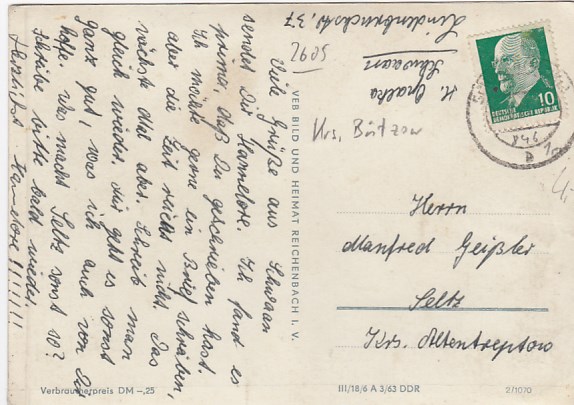 Viele Grüße aus Schwaan
sendet Dir Hannelore. Ich fand es
prima, daß Du geschrieben hast.
Ich möchte gerne ein Brief schreiben,
aber die Zeit reicht nicht. Das
nächste Mal aber. Schreib man
gleich wieder. Dir geht es sonst
ganz gut, was ich auch von Dir
hoffe. Was macht Seltz sonst so?
Schreibe bitte bald wieder.
Hannelore !!!!!!!!
VEB BILD UND HEIMAT REICHENBACH I. V.
H.
Schwaan
Lindenbruchstr. 37
2605
Krs. Bützow
10
DEUTSCHE
DEMOKRATISCHE REPUBLIK
Herrn
Manfred Geißler
Seltz
Krs. Altentreptow
Verbraucherpreis DM –,25
III/18/6 A 3/63 DDR
2/1070